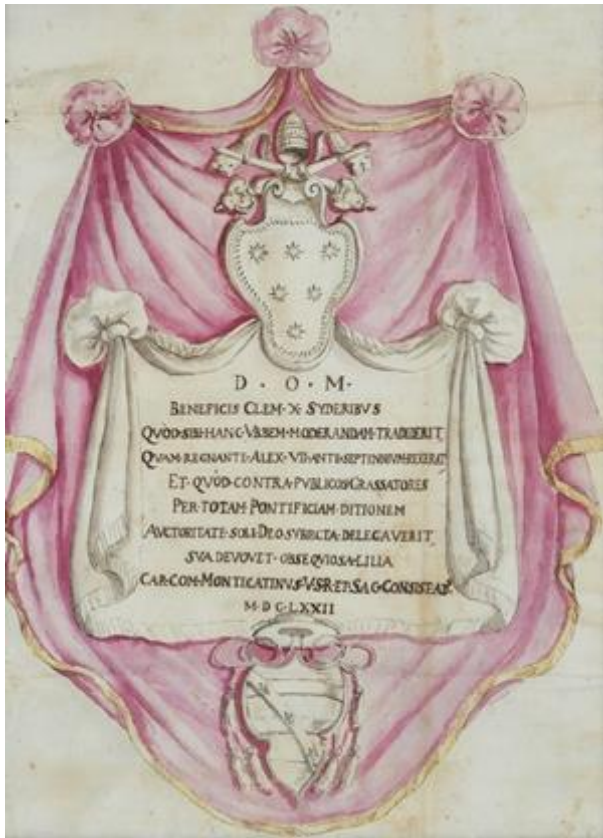 D · O · M ·
BENEFICIS CLEM · X · SYDERIBVS
QVÒD · SIBI · HANC · VRBEM · MODERANDAM · TRADIDERIT
QVAM · REGNANTE · ALEX · VII · ANTE · SEPTENNIVM · REXERAT
ET · QVÒD · CONTRA · PVBLICOS · GRASSATORES
PER · TOTAM · PONTIFICIAM · DITIONEM
AVCTORITATE · SOLI · DEO · SVBIECTA · DELEGAVERIT
SVA DEVOVET · OBSEQVIOSA · LILIA
CAR · COM · MONTICATINVS · V · S · R · ET · SAC · CONSIST · AD
M · D C · LXXII